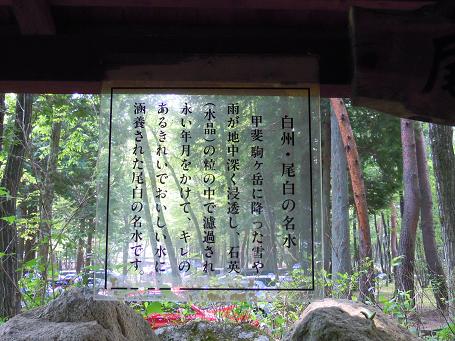 白州・尾白の名水
甲斐駒ケ岳に降った雪や
雨が地中深く浸透し、石英
(水晶)の粒の中で濾過され
永い年月をかけて、キレの
あるきれいでおいしい水に
涵養された尾白の名水です。